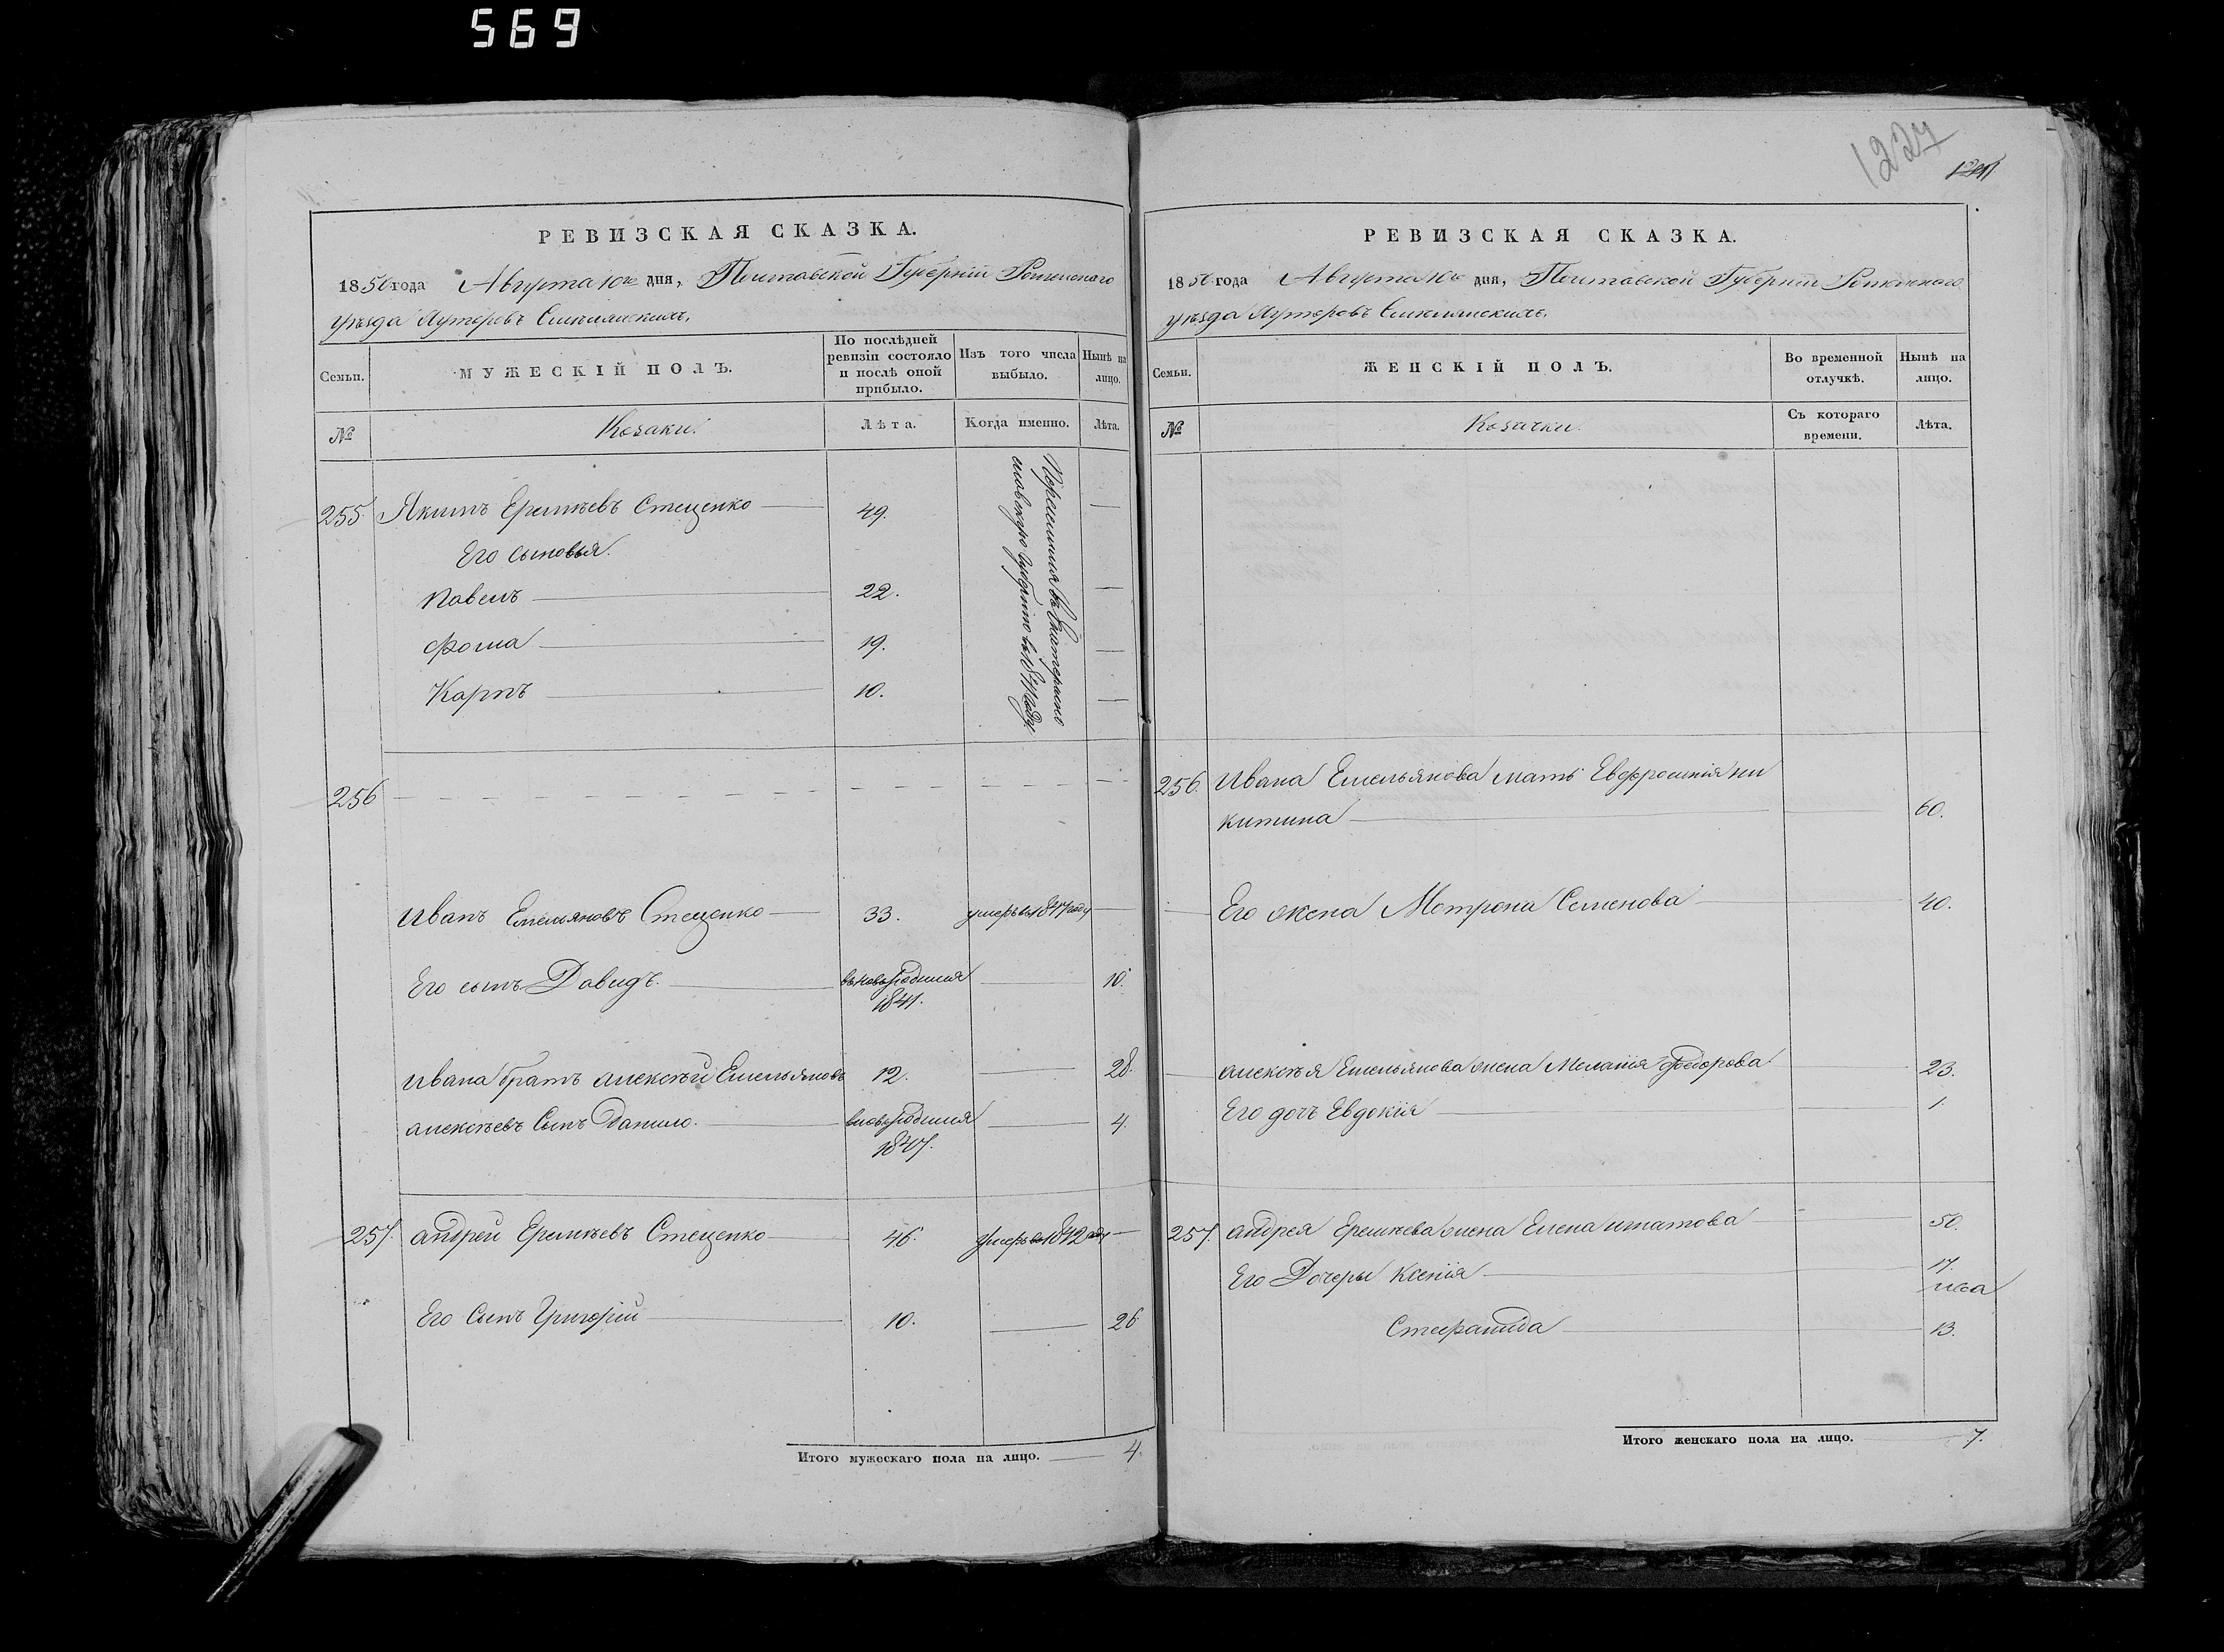 569
РЕВИЗСКАЯ СКАЗКА.
1850 года Августа 10го дня, Полтавской Губерніи Роменскаго
уѣзда Хуторовъ Смѣлянскихъ.
Семьи.
МУЖЕСКІЙ ПОЛЪ.
По послѣдней
ревизіи состояло
и послѣ оной
прибыло.
Изъ того числа
выбыло.
Нынѣ на
лицо.
№
Козаки.
Лѣта.
Когда именно.
Лѣта.
255. Якимъ Еремѣевъ Стеценко 49.
Его сыновья.
Павелъ 22.
Фома 19.
Карпъ 10.
Переселился въ Екатерино
славскую Губернію въ году
256
Иванъ Емельяновъ Стеценко 33. умеръ въ 1847 году
Его сынъ Давидъ. вновь родился 10.
1841.
Ивана братъ алексѣй Емельяновъ 12. 28.
алексѣевъ Сынъ Данило. вновь родился 4.
1847.
257. андрей Еремѣевъ Стеценко 46. умеръ въ 1842 году
Его Сынъ Григорій 10. 26
Итого мужескаго пола на лицо. 4.
1227
РЕВИЗСКАЯ СКАЗКА.
1850 года Августа 10го дня, Полтавской Губерніи Роменскаго
уѣзда Хуторовъ Смѣлянскихъ.
Семьи.
ЖЕНСКІЙ ПОЛЪ.
Во временной
отлучкѣ.
Нынѣ на
лицо.
№
Козачки.
Съ котораго
времени.
Лѣта.
256. Ивана Емельянова мать Евфросинія ни
китина 60.
Его жена Мотрона Семенова 40.
алексѣя Емельянова жена Меланія Федорова 23.
Его дочь Евдокія 1.
257. андрея Еремѣева жена Елена игнатова 50.
Его Дочеры Ксенія 17.
Стефанида 13.
Итого женскаго пола на лицо. 7.